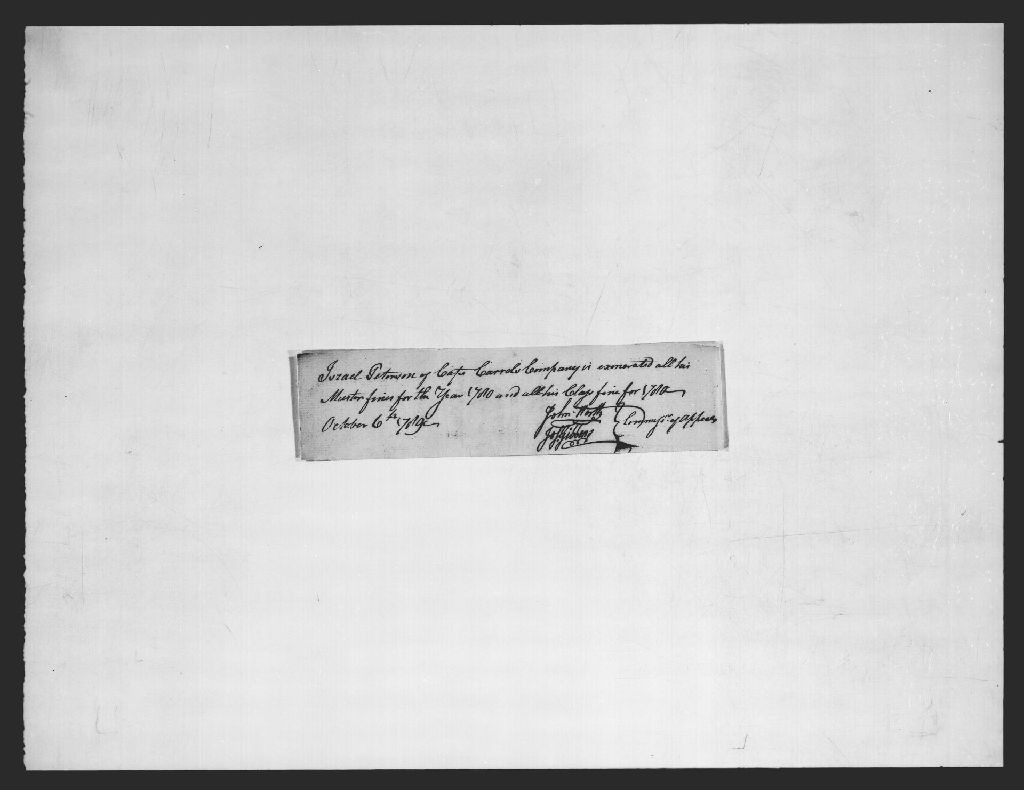 Israel Peterson of Capt Carrols Company is exonerated all his
Muster fines for the Year 1780 and all his Class fine for 1780
October 6th 1789
John Work
Jos Gibbons
Commissrs of Appeals